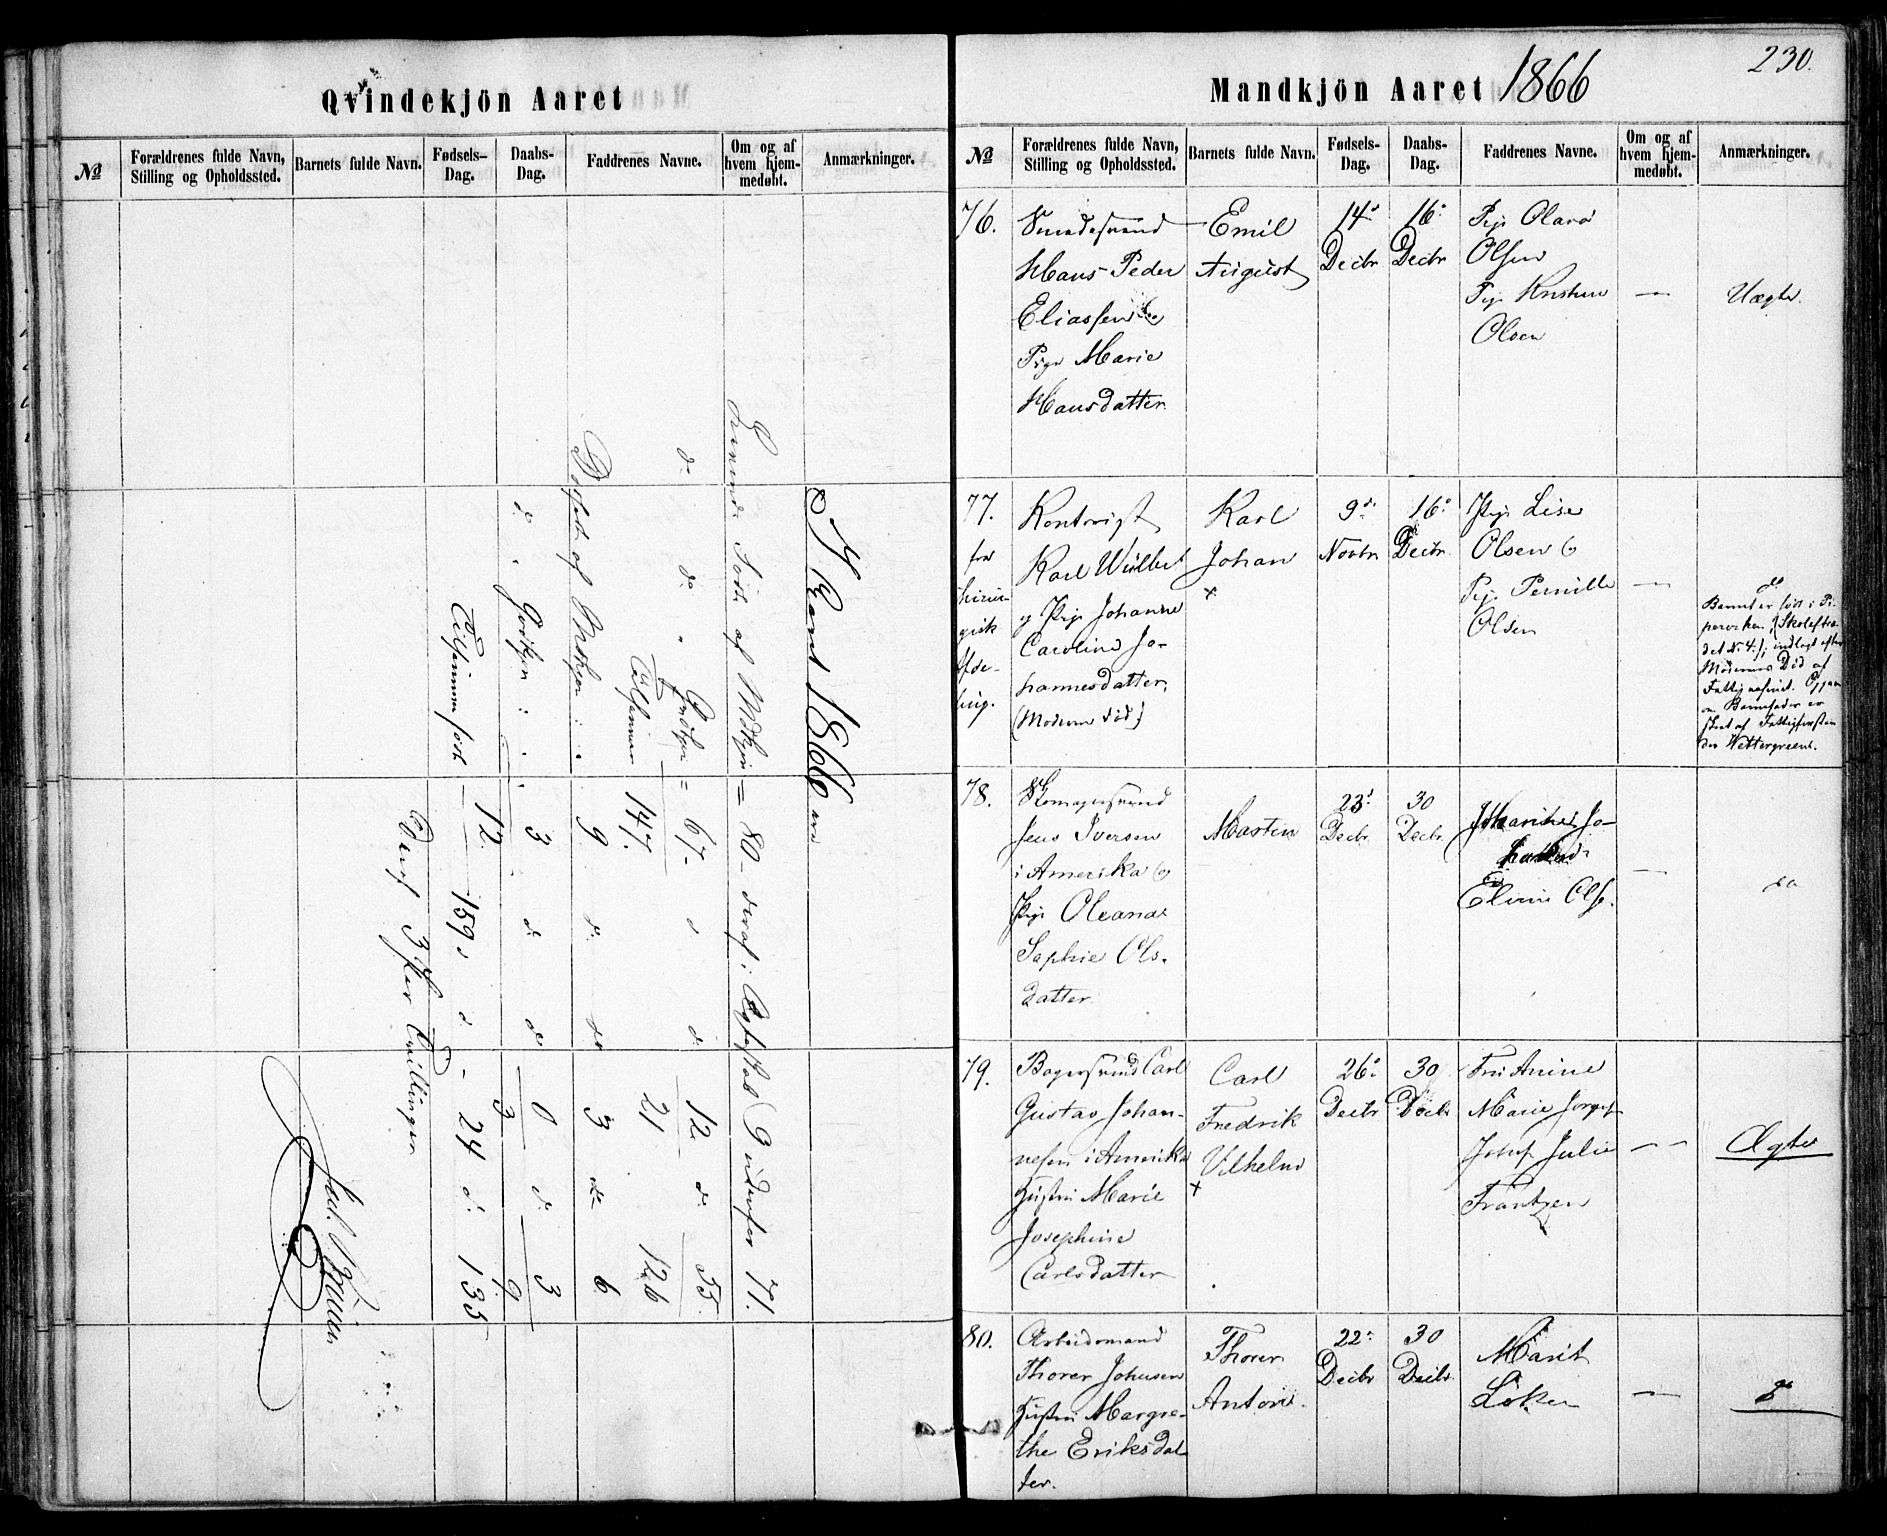 Qvindekjön Aaret
№
Forældrenes fulde Navn, Stilling og Opholdssted.
Barnets fulde Navn.
Fødsels-Dag.
Daabs-Dag.
Faddrenes Navne.
Om og af hvem hjem-medøbt.
Anmærkninger.
I Aaret 1866 ere
Levende fødte af Mdkjøn = 80 - deraf i Ægteskab 9 udenfor 71.
do do Qvdkjn = 67 - d d 12 d. 55.
Tilsammen 147. 21 126
Dødfødte af Mdkjøn : . 9 d. do 3 do 6
d. Qvdkjn : . . 3 d. do 0 d. 3
12 3 9.
Tilsammen født 159 d d - 24 d. 135
Deraf 3 Par Tvillinger
Mandkjön Aaret 1866
230.
№
Forældrenes fulde Navn, Stilling og Opholdssted.
Barnets fulde Navn.
Fødsels-Dag.
Daabs-Dag.
Faddrenes Navne.
Om og af hvem hjem-medøbt.
Anmærkninger.
76.
Smedesvend
Hans Peder
Eliassen &
Pige Marie
Hansdatter
Emil
August
14d
Decbr
16d
Decbr
Pige Olava
Olsen
Pige
Olsen
—
Uægte.
77.
fra
kirur-
gisk
Afde-
ling.
Kontorist
Karl
og Pige Johanne
Caroline Jo-
hannesdatter,
(Moderen død)
Karl
Johan
x
9de
Novbr
16d
Decbr
Pige Lise
Olsen &
Pige Pernille
Olsen
—
do
Barnet er født i Pi-
pervi
det No 4; indlagt efter
Moderens Død af
Fattigvæsenet. Opgave
om Barnefader er
skeet af Fattigforstan
der Wettergreen.
78.
Skomagersvend
Jens Iversen
i Amerika &
Pige Oleana
Sophie Ols-
datter
Martin
23d
Decbr
30
Decbr
Jo-
Elvine Ols.
—
do
79.
Bagersvend Carl
Gustav Johan-
nesen i Amerika
Hustru Marie
Josephine
Carlsdatter
Carl
Fredrik
Vilhelm
x
26d
Decbr
30
Decbr
Fru Anine
Marie
Jomf Julie
Frantzen
— —
Ægte
80.
Arbeidsmand
Thorer Johnsen
Hustru Margre-
the Eriksdat
ter.
Thorer
Anton.
22d
Decbr
30
Decbr
Marit
Löken
—
do